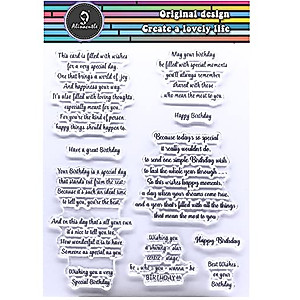 Original design
Create a lovely life
This card is filled with wishes
for a very special day.
One that brings a world of joy
And happiness your way.
It's also filled with loving thoughts
especially meant for you.
For you're the kind of person
happy things should happen to.
Have a great Birthday
Your Birthday is a special day
that stands out from the rest
Because it's such an ideal time
to tell you, you're the best.
And on this day that's all your own
it's nice to tell you, too
How wonderful it is to have
Someone as special as you.
Wishing you a
very Special
Birthday
May your birthday
be filled with special moments
you'll always remember
shared with those
who mean the most to you.
Happy Birthday
Because today's so special
it really wouldn't do,
to send one simple Birthday wish
to last the whole year through
So this wishes happy moments,
a day when your dreams come true,
and a year that's filled with all the things
that mean the most to you
Wishing you
a shining star
center stage
be who you wanna be
BIRTHDAY
Happy Birthday
Best Wishes
on your
Birthday